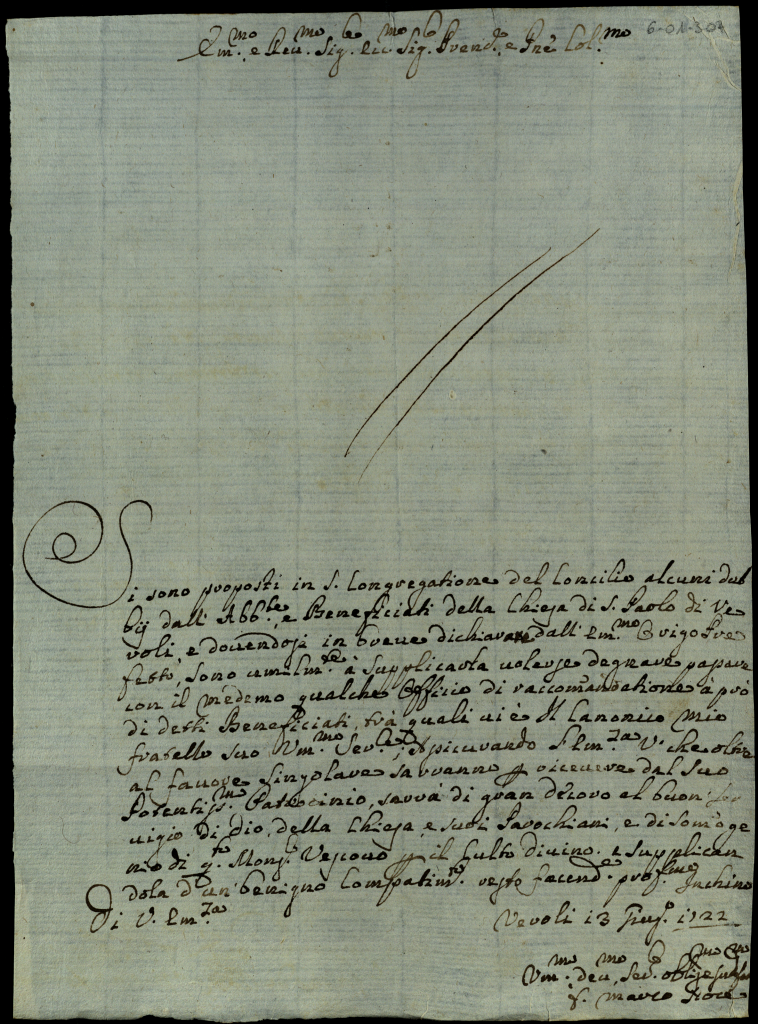 6-011-302
Em.mo e Reu.mo Sig.re Sig. Prend.e e Pñe Col.mo
Si sono proposti in S. Congregatione del Concilio alcuni dub
bij dall' Abb.te, e Beneficiati della Chiesa di S. Paolo di Ve
roli, e douendosi in breue dichiarare dall' Em.mo Origo Pre
fetto, sono umilm.te à supplicarla uolersi degnare passare
con il medemo qualche Officio di raccomandatione à prò
di detti Beneficiati, trà quali ui è Il Canonico mio
fratello suo Um.mo Ser.re, Assicurando l'Em.za V. che oltre
al fauore singolare sarranno p riceuere dal suo
Potentiss.mo Patrocinio, sarrà di gran decoro al buon ser
uigio di Dio, della Chiesa, e suoi Parochiani, e di sommo ge
nio di q.to Mons.r Vescouo p il Culto diuino. e supplican
dola d'un benigno Compatim.to resto facend.e prof.mo Inchino
Di V. Em.za
Veroli 13 Giug.o 1722
Um.mo deu.mo Ser.
marco